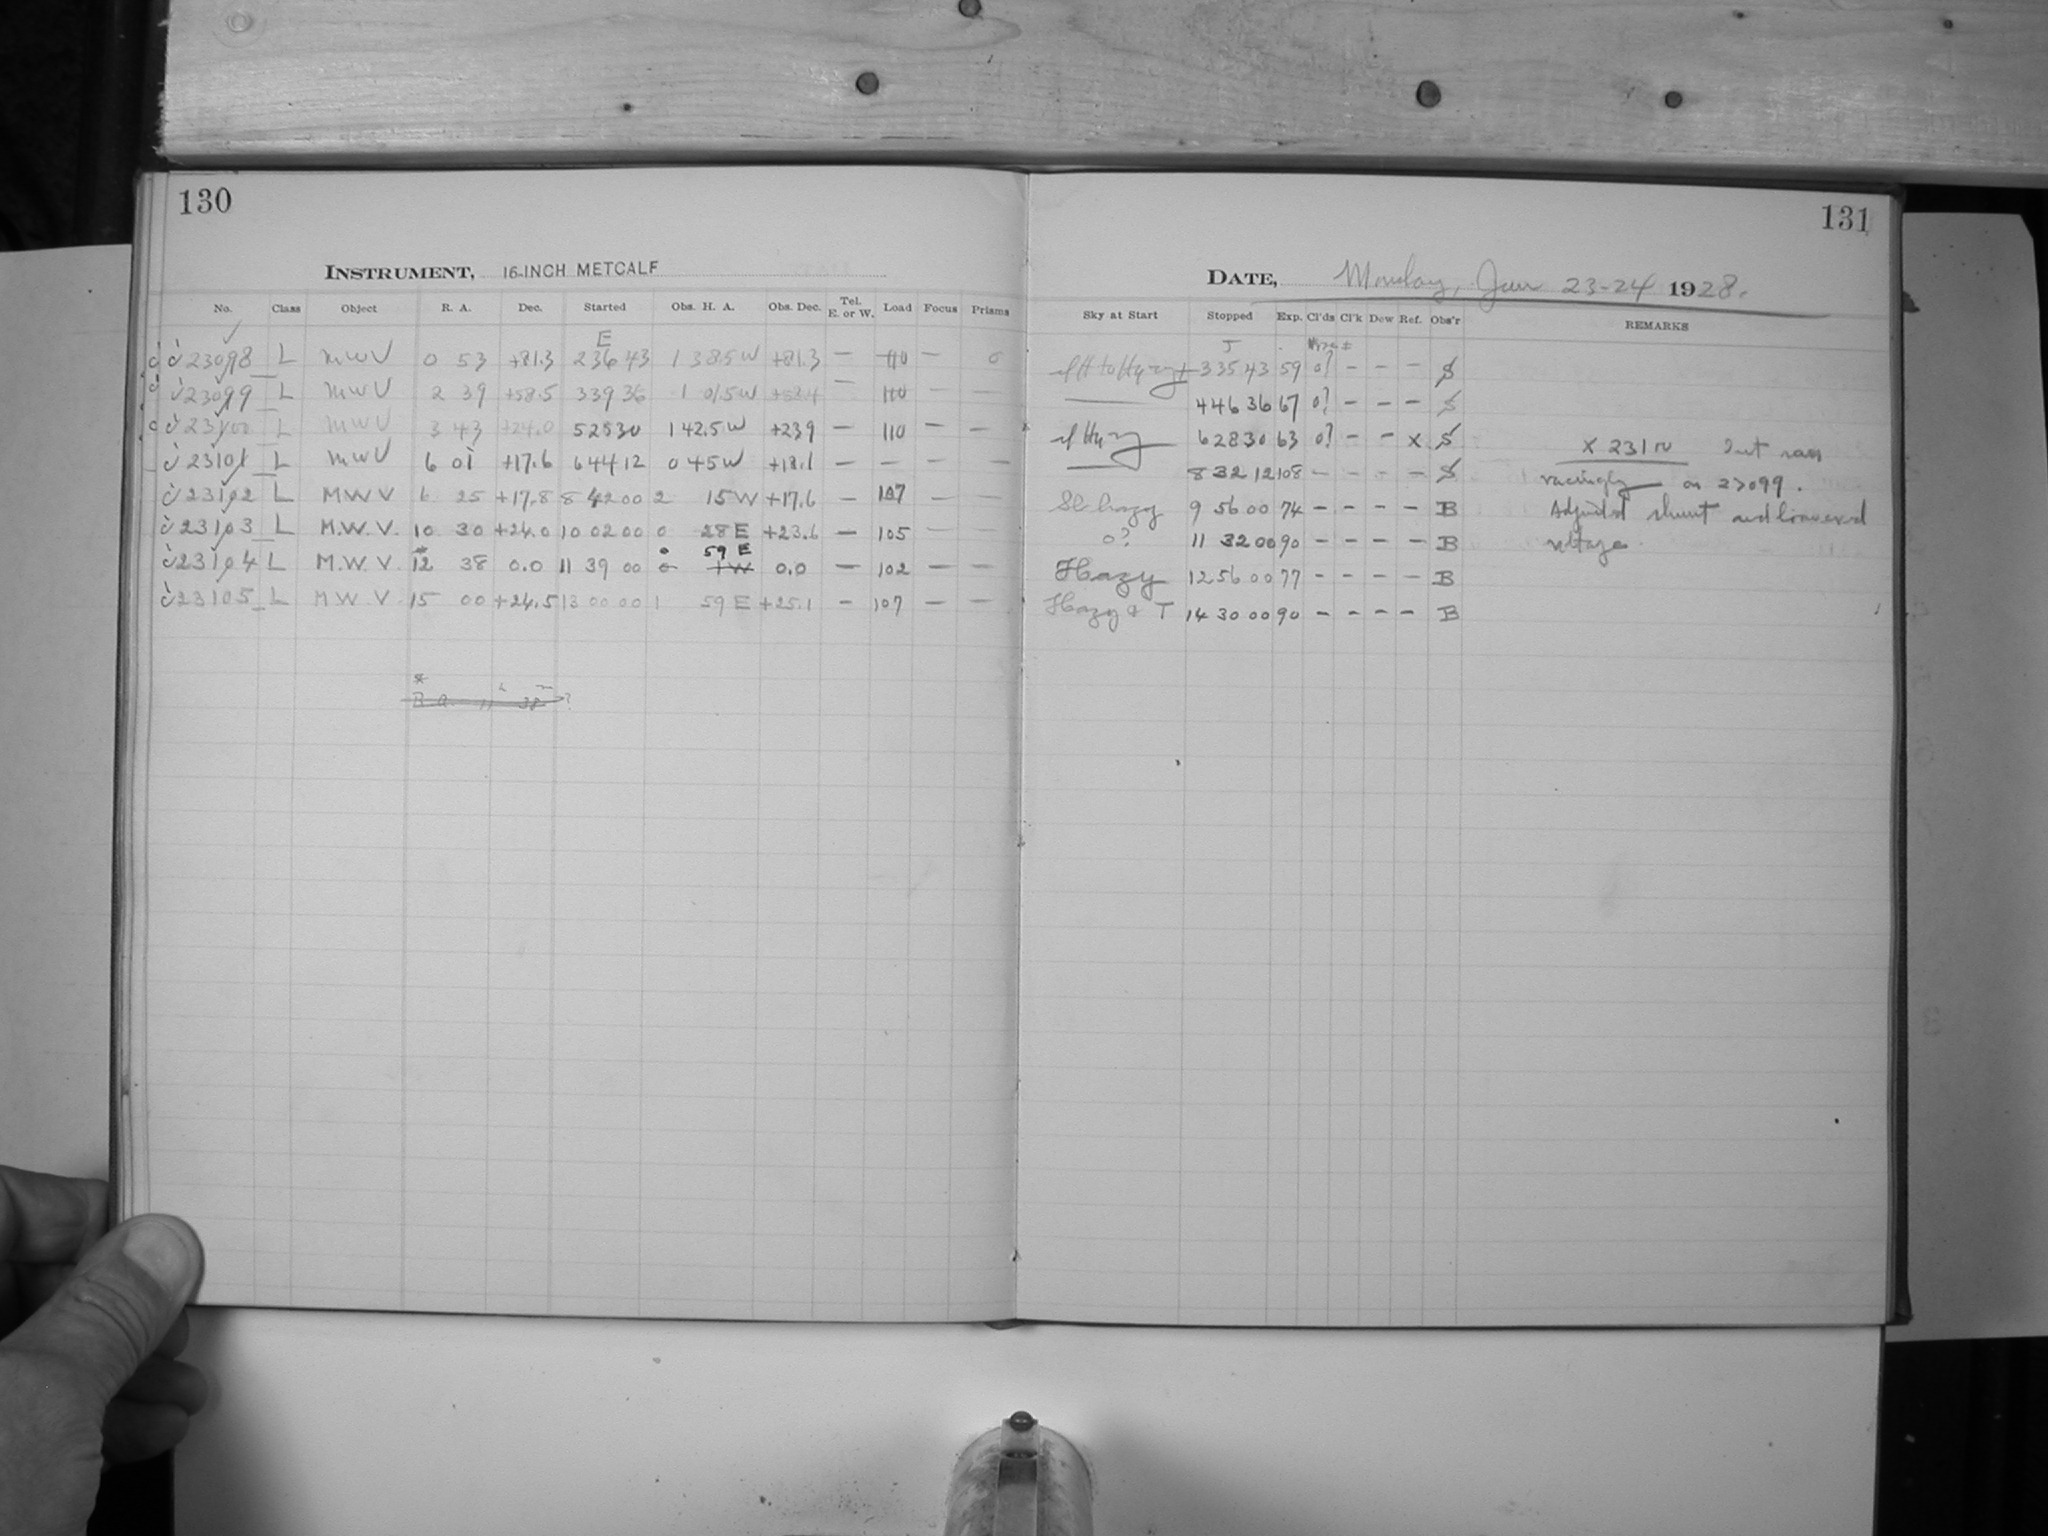 130
INSTRUMENT, 16-INCH METCALF
No. Class Object R. A. Dec. Started Obs. H. A. Obs. Dec. Tel. E. or W. Load Focus Prisms
E
23098 L MWV 0 53 +81.3 23643 1 38.5W +81.3 — 110 —
23099 L MWV 2 39 +58.5 33936 1 01.5W — 110 — —
23100 L MWV 3 43 +24.0 52530 1 42.5W +23.9 — 110 — —
23101 L MWV 6 01 +17.6 64412 0 45W +18.1 — — — —
23102 L M.W.V 6 25 +17.8 8 42 00 2 15W +17.6 — 107 — —
23103 L M.W.V. 10 30 +24.0 10 02 00 0 28E +23.6 — 105 — —
0 59 E
23104 L M.W.V. *12 38 0.0 11 39 00 0 1W 0.0 — 102 — —
23105 L M.W.V. 15 00 +24.5 13 00 00 1 59E +25.1 — 107 — —
*
R a 11h 38m ?
131
DATE, Monday, Jan 23-24 1928.
Sky at Start Stopped Exp. Cl'ds Cl'k Dew Ref. Obs'r REMARKS
33543 59 0? — — — S
44636 67 0? — — — S
62830 63 0? — — x S
8 32 12 108 — — — — S
Sl hazy 9 56 00 74 — — — — B
0? 11 32 00 90 — — — — B
Hazy 12 56 00 77 — — — — B
Hazy & T 14 30 00 90 — — — — B
x 23100 Inst ran
racingly on 23099.
Adjusted shunt and lowered
voltage